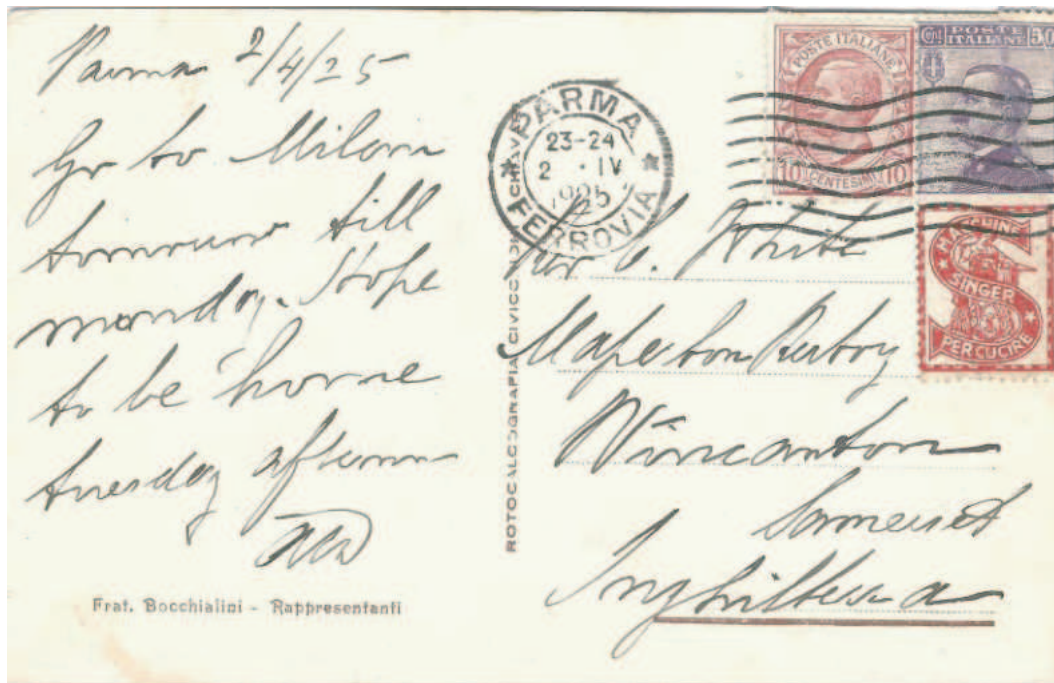 Parma 2/4/25
Go to Milan
tomorrow till
monday. Hope
to be home
tuesday aftern
Frat. Bocchialini - Rappresentanti
ROTOCALCOGRAFIA CIVICCHIONI CHIAV
PARMA
23-24
2 · IV
1925
FERROVIA
POSTE ITALIANE
10 CENTESIMI 10
Cent POSTE 50
ITALIANE
MACCHINE
SINGER
PER CUCIRE
White
Maperton Rectory
Wincanton
Somerset
Inghilterra